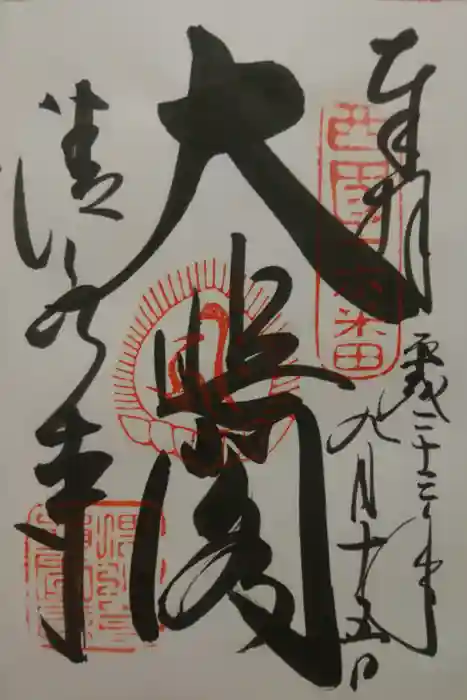 奉拝
西國十六番
平成二十三年
九月十五日
大悲閣
清水寺